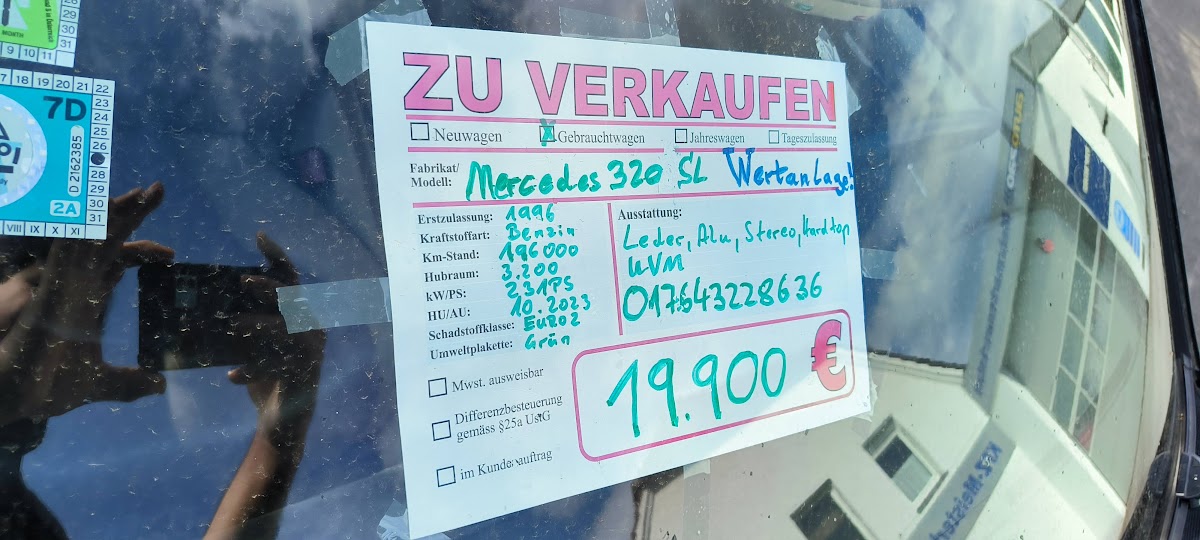 ZU VERKAUFEN
Neuwagen Gebrauchtwagen Jahreswagen Tageszulassung
Fabrikat/
Modell: Mercedes 320 SL Wertanlage!
Erstzulassung: 1996
Kraftstoffart: Benzin
Km-Stand: 196000
Hubraum: 3.200
kW/PS: 231PS
HU/AU: 10.2023
Schadstoffklasse: EURO2
Umweltplakette: Grün
Ausstattung:
Leder, Alu, Stereo, Hardtop
UVM
017643228636
19.900 €
Mwst. ausweisbar
Differenzbesteuerung
gemäss §25a UstG
im Kundenauftrag
MONTH
28
29
30
31
9 10 11
17 18 19 20 21 22
23
24
25
26
28
29
30
31
7D
D 2162385
2A
VIII IX X XI